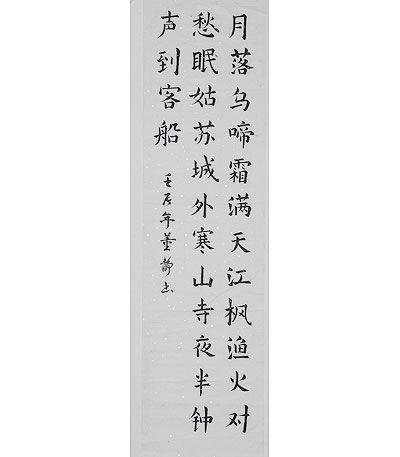 月落乌啼霜满天江枫渔火对
愁眠姑苏城外寒山寺夜半钟
声到客船
壬辰年董静书